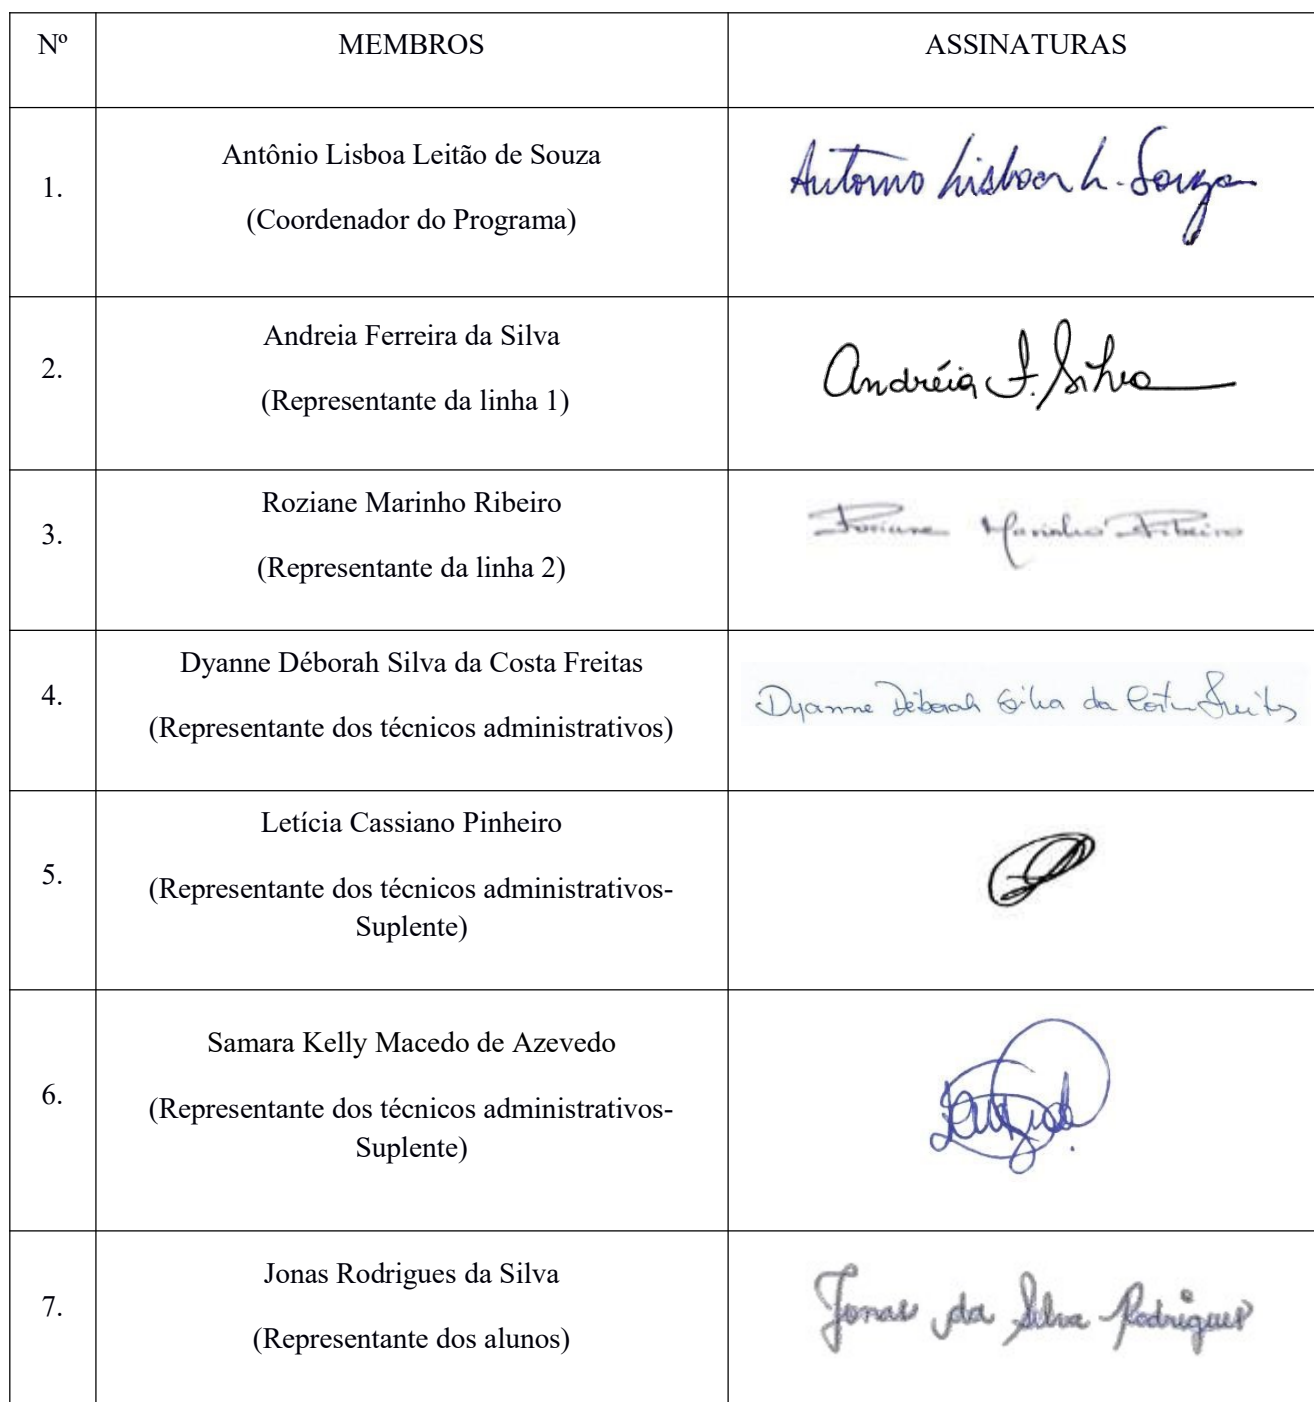 Nº MEMBROS ASSINATURAS
1.
Antônio Lisboa Leitão de Souza
(Coordenador do Programa)
Antonio Lisboa L. Souza
2.
Andreia Ferreira da Silva
(Representante da linha 1)
Andréia F. Silva
3.
Roziane Marinho Ribeiro
(Representante da linha 2)
Roziane Marinho Ribeiro
4.
Dyanne Déborah Silva da Costa Freitas
(Representante dos técnicos administrativos)
Dyanne Déborah Silva da Costa Freitas
5.
Letícia Cassiano Pinheiro
(Representante dos técnicos administrativos-
Suplente)
6.
Samara Kelly Macedo de Azevedo
(Representante dos técnicos administrativos-
Suplente)
7.
Jonas Rodrigues da Silva
(Representante dos alunos)
Jonas da Silva Rodrigues